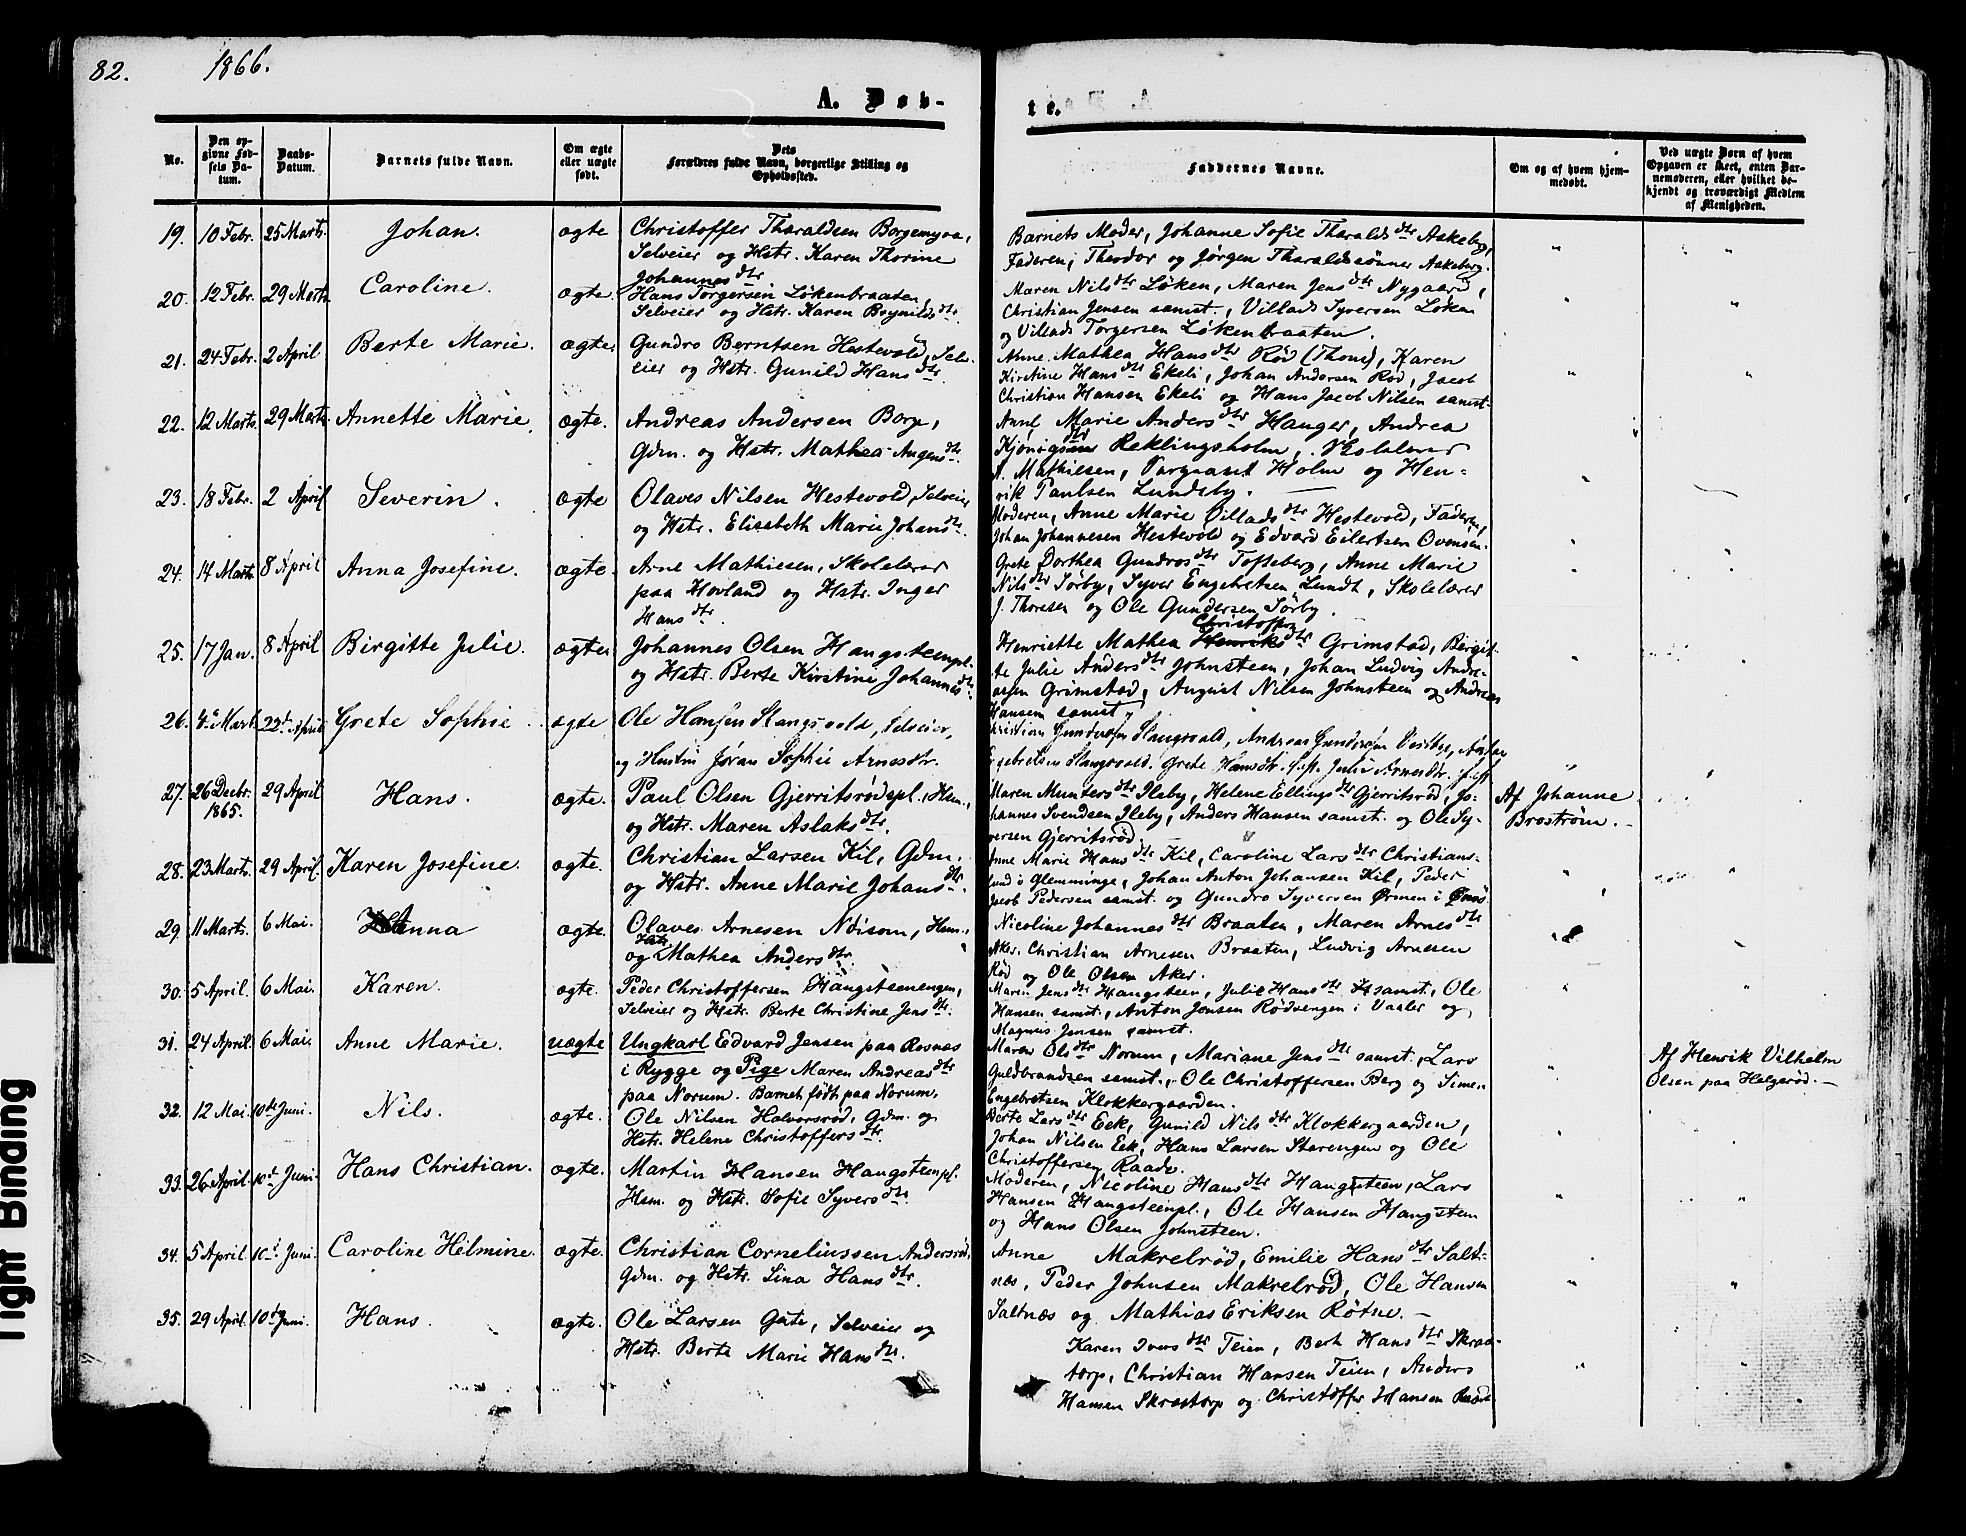 82. 1866.
A. Døb-
te.
No.
Den op-
givne Fød-
sels Da-
tum.
Daabs-
Datum.
Barnets fulde Navn.
Om ægte
eller uægte
født.
Dets
Forældres fulde Navn, borgerlige Stilling og
Opholdssted.
Faddernes Navne.
Om og af hvem hjem-
medøbt.
Ved uægte Børn af hvem
Opgaven er skeet, enten Bar-
nemoderen, eller hvilket be-
kjendt og troværdigt Medlem
af Menigheden.
19. 10 Febr. 25 Marts. Johan. ægte
Christoffer Tharaldsen Borgemyra,
Selveier og Hstr. Karen Thorine
Johannesdtr
Barnets Moder, Johanne Sofie Tharaldsdtr Askeberg,
Faderen, Theodor og Jørgen Tharaldssønner Askeberg.
20. 12 Febr. 29 Marts Caroline. ægte.
Hans Torgersen Løkenbraaten,
Selveier og Hstr. Karen Brynildsdtr.
Maren Nilsdtr Løken, Maren Jensdtr Nygaard,
Christian Jensen samst., Villads Syversen Løken
og Villads Torgersen Løkenbraaten.
21. 24 Febr. 2 April Berte Marie. ægte.
Gundro Berntsen Hestevold, Selv-
eier og Hstr. Gunild Hansdtr.
Anne Mathea Hansdtr Rød (Thom), Karen
Kirstine Hansdtr Ekeli, Johan Andersen Rød, Jacob
Christian Hansen Ekeli og Hans Jacob Nilsen samst.
22. 12 Marts. 29 Marts Annette Marie. ægte.
Andreas Andersen Borge,
Gdm. og Hstr. Mathea Augensdtr.
Marie Andersdtr Hauger, Andrea
Reklingsholm, Skolelærer
A. Mathiesen, Holm og Hen-
rik Paulsen Lundeby.
23. 18 Febr. 2 April Severin. ægte
Olaves Nilsen Hestevold, Selveier
og Hstr. Elisabeth Marie Johansdtr.
Moderen, Anne Marie Villadsdtr Hestevold, Faderen,
Johan Johannesen Hestevold og Edvard Eilertsen Ovensen.
24. 14 Marts. 8 April Anna Josefine. ægte.
Arne Mathiesen, Skolelærer
paa Hovland og Hstr. Inger
Hansdtr.
Grete Dorthea Gundrosdtr Tofteberg, Anne Marie
Nilsdtr Sørby, Syver Engebretsen Lundt, Skolelærer
J. Thoresen og Ole Gundersen Sørby.
25. 17 Jan. 8 April Birgitte Julie. ægte.
Johannes Olsen Hangsteenpl.
og Hstr. Berte Kirstine Johannesdtr.
Christoffers
Henriette Mathea Henriksdtr Grimstad, Birgit-
te Julie Andersdtr Johnsteen, Johan Ludvig Andre-
asen Grimstad, August Nilsen Johnsteen og Andreas
Hansen samst.
26. 4de Marts 22d April Grete Sophie. ægte
Ole Hansen Slangsvold, Selveier,
og Hustru Jøran Sophie Arnesdtr.
Christian Gundersen Slangsvold, Andreas Gundersen Vestby, Anton
Engebretsen Slangsvold. Grete Hansdtr. Julie Arnesdtr.
27. 26 Decbr. 1865. 29 April Hans. ægte.
Paul Olsen Gjerritsrødepl. Hsm.,
og Hstr. Maren Aslaksdtr.
Maren Muntersdtr Ileby, Helene Ellingsdtr Gjerritsrød, Jo-
hannes Svendsen Ileby, Anders Hansen samst. og Ole Sy-
versen Gjerritsrød.
Af Johanne
Brostrøm.
28. 23 Marts. 29 April. Karen Josefine. ægte.
Christian Larsen Kil, Gdm.
og Hstr. Anne Marie Johansdtr.
Anne Marie Hansdtr Kil, Caroline Larsdtr Christians-
lund i Glemminge, Johan Anton Johansen Kil, Peder
Jacob Pedersen samst. og Gundro Syversen Ørmen i Onsø
29. 11 Marts. 6 Mai. Anna ægte.
Olaves Arnesen Neisom, Hsm.,
og Hstr. Mathea Andersdtr.
Nicoline Johannesdtr Braaten, Maren Arnesdtr
Aker. Christian Arnesen Braaten, Ludvig Arnesen
Rød og Ole Olsen Aker.
30. 5 April. 6 Mai. Karen. ægte.
Peder Christoffersen Hangsteenengen,
Selveier og Hstr. Berte Christine Jensdtr.
Maren Jensdtr Hangsteen, Julie Hansdtr samst., Ole
Hansen samst., Anton Jensen Rødsengen i Vaaler og
Magnus Jensen samst.
31. 24 April. 6 Mai. Anne Marie. uægte
Ungkarl Edvard Jensen paa Rosnæs
i Rygge og Pige Maren Andreasdtr
paa Norum. Barnet født paa Norum.
Maren Olsdtr Norum, Mariane Jensdtr samst., Lars
Guldbrandsen samst., Ole Christoffersen Berg og Simen
Engebretsen Klokkergaarden.
Af Henrik Vilhelm
Olsen paa Helgerød.
32. 12 Mai. 10de Juni. Nils. ægte.
Ole Nilsen Halvorsrød, Gdm. og
Hstr. Helene Christoffersdtr.
Berte Larsdtr Eek, Gunild Nilsdtr Klokkergaarden,
Johan Nilsen Eek, Hans Larsen Starengen og Ole
Christoffersen Raade.
33. 26 April. 10de Juni. Hans Christian. ægte.
Martin Hansen Hangsteenpl.
Hsm. og Hstr. Sofie Syversdtr.
Moderen, Nicoline Hansdtr Hangsteen, Lars
Hansen Hangsteenpl., Ole Hansen Hangsteen
og Hans Olsen Johnsteen.
34. 5 April. 10de Juni. Caroline Helmine. ægte.
Christian Corneliussen Andersrød,
Gdm. og Hstr. Lina Hansdtr.
Anne Makrelrød, Emilie Hansdtr Salt-
næs, Peder Johnsen Makrelrød, Ole Hansen
Saltnæs og Mathias Eriksen Røtne.
35. 29 April. 10de Juni. Hans. ægte.
Ole Larsen Gate, Selveier og
Hstr. Berte Marie Hansdtr.
Karen Iversdtr Teien, Berte Hansdtr Skraa-
torp, Christian Hansen Teien, Anders
Hansen Skraatorp og Christoffer Hansen
Tight Binding